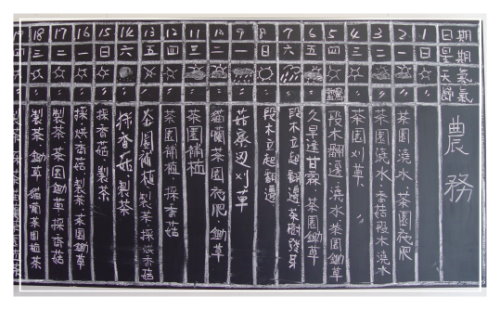 日期 1 2 3 4 5 6 7 8 9 10 11 12 13 14 15 16 17 18
星期 日 一 二 三 四 五 六 日 一 二 三 四 五 六 日 一 二 三
天氣
節氣
農務
茶園澆水.茶園施肥
茶園澆水.香菇段木澆水
茶園刈草.
段木翻邊.澆水.茶園鋤草
久旱逢甘霖.茶園鋤草
段木立起翻邊.茶樹發芽
段木立起翻邊
菇寮 刈草
貓蘭茶園施肥.鋤草
茶園補植
茶園補植.採香菇
茶園補植.製茶.採烘香菇
採香菇.製茶
採香菇.製茶
採烘香菇.製茶.茶園鋤草
製茶.茶園鋤草.採香菇
製茶.鋤草.貓蘭茶園植茶